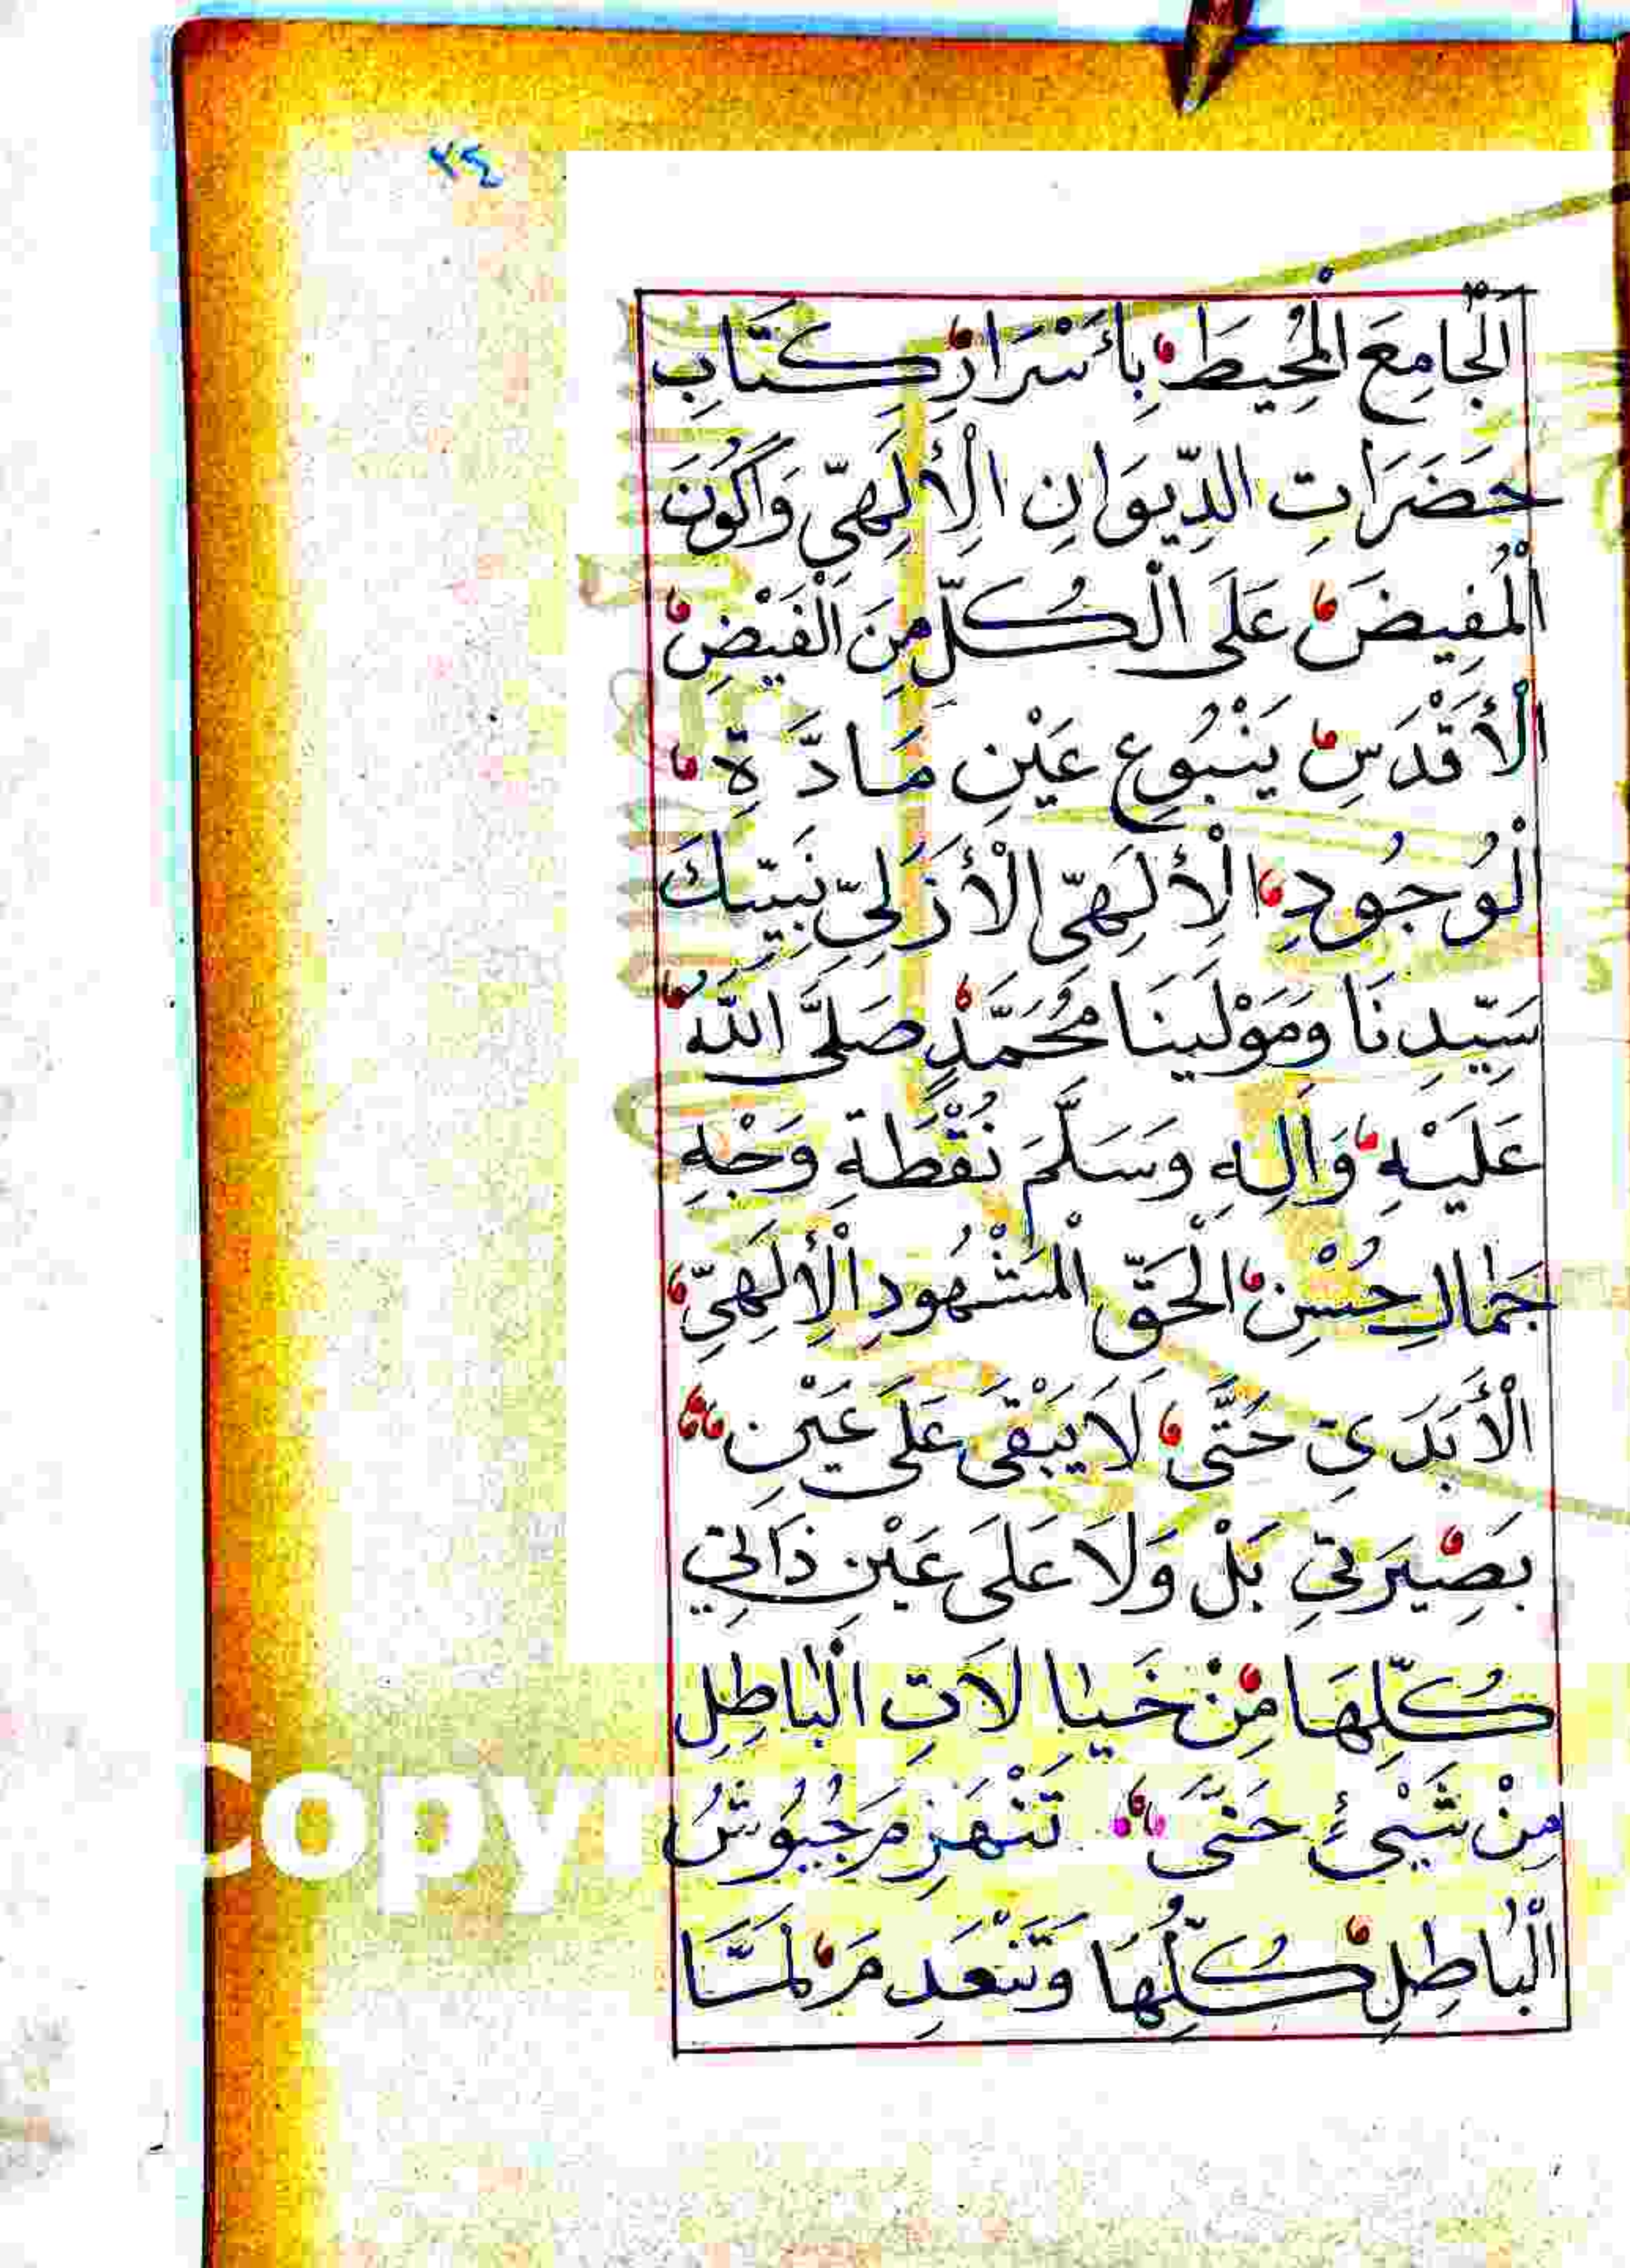 ٧٤
الْجَامِعَ الْمُحِيطَ بِأَسْرَارِ كِتَابِ
حَضَرَاتِ الدِّيوَانِ الْإِلَهِيِّ وَأَكُونَ
الْمُفِيضَ عَلَى الْكُلِّ مِنَ الْفَيْضِ
الْأَقْدَسِ يَنْبُوعِ عَيْنِ مَادَّةِ
الْوُجُودِ الْإِلَهِيِّ الْأَزَلِيِّ نَبِيِّكَ
سَيِّدِنَا وَمَوْلَينَا مُحَمَّدٍ صَلَّى اللَّهُ
عَلَيْهِ وَآلِهِ وَسَلَّمَ نُقْطَةِ وَجْهِ
جَمَالِ حُسْنِ الْحَقِّ الْمَشْهُودِ الْإِلَهِيِّ
الْأَبَدِيِّ حَتَّى لَا يَبْقَى عَلَى عَيْنِ
بَصِيرَتِي بَلْ وَلَا عَلَى عَيْنِ ذَاتِي
كُلِّهَا مِنْ خَيَالَاتِ الْبَاطِلِ
مِنْ شَيْءٍ حَتَّى تَنْهَزِمَ جُيُوشُ
الْبَاطِلِ كُلِّهَا وَتَنْعَدِمَ لَمَّا
Copyr